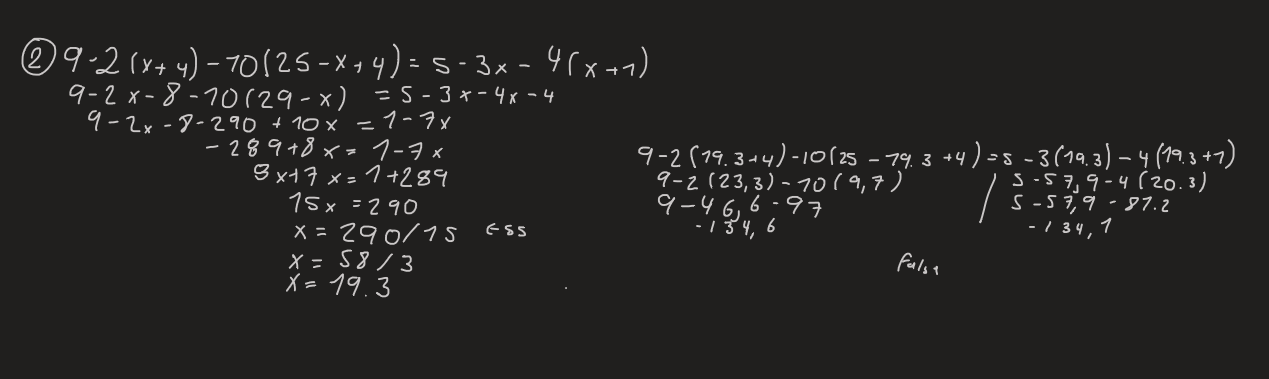 ② 9-2(x+4)-10(25-x+4)=5-3x-4(x+1)
9-2x-8-10(29-x) =5-3x-4x-4
9-2x-8-290+10x =1-7x
-289+8x=1-7x
8x+7x=1+289
15x=290
x=290/15
x=58/3
x=19.3
9-2(19.3+4)-10(25-19.3+4)=5-3(19.3)-4(19.3+1)
9-2(23,3)-10(9,7) / 5-57,9-4(20.3)
9-46,6-97 5-57,9-81.2
-134,6 -134,1